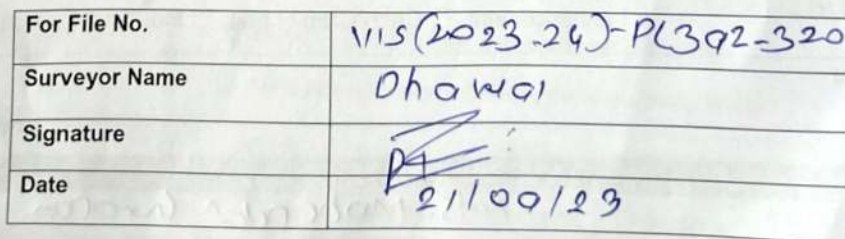 For File No. VIS(2023-24)-PL392-320
Surveyor Name Dhawal
Signature
Date 21/09/23